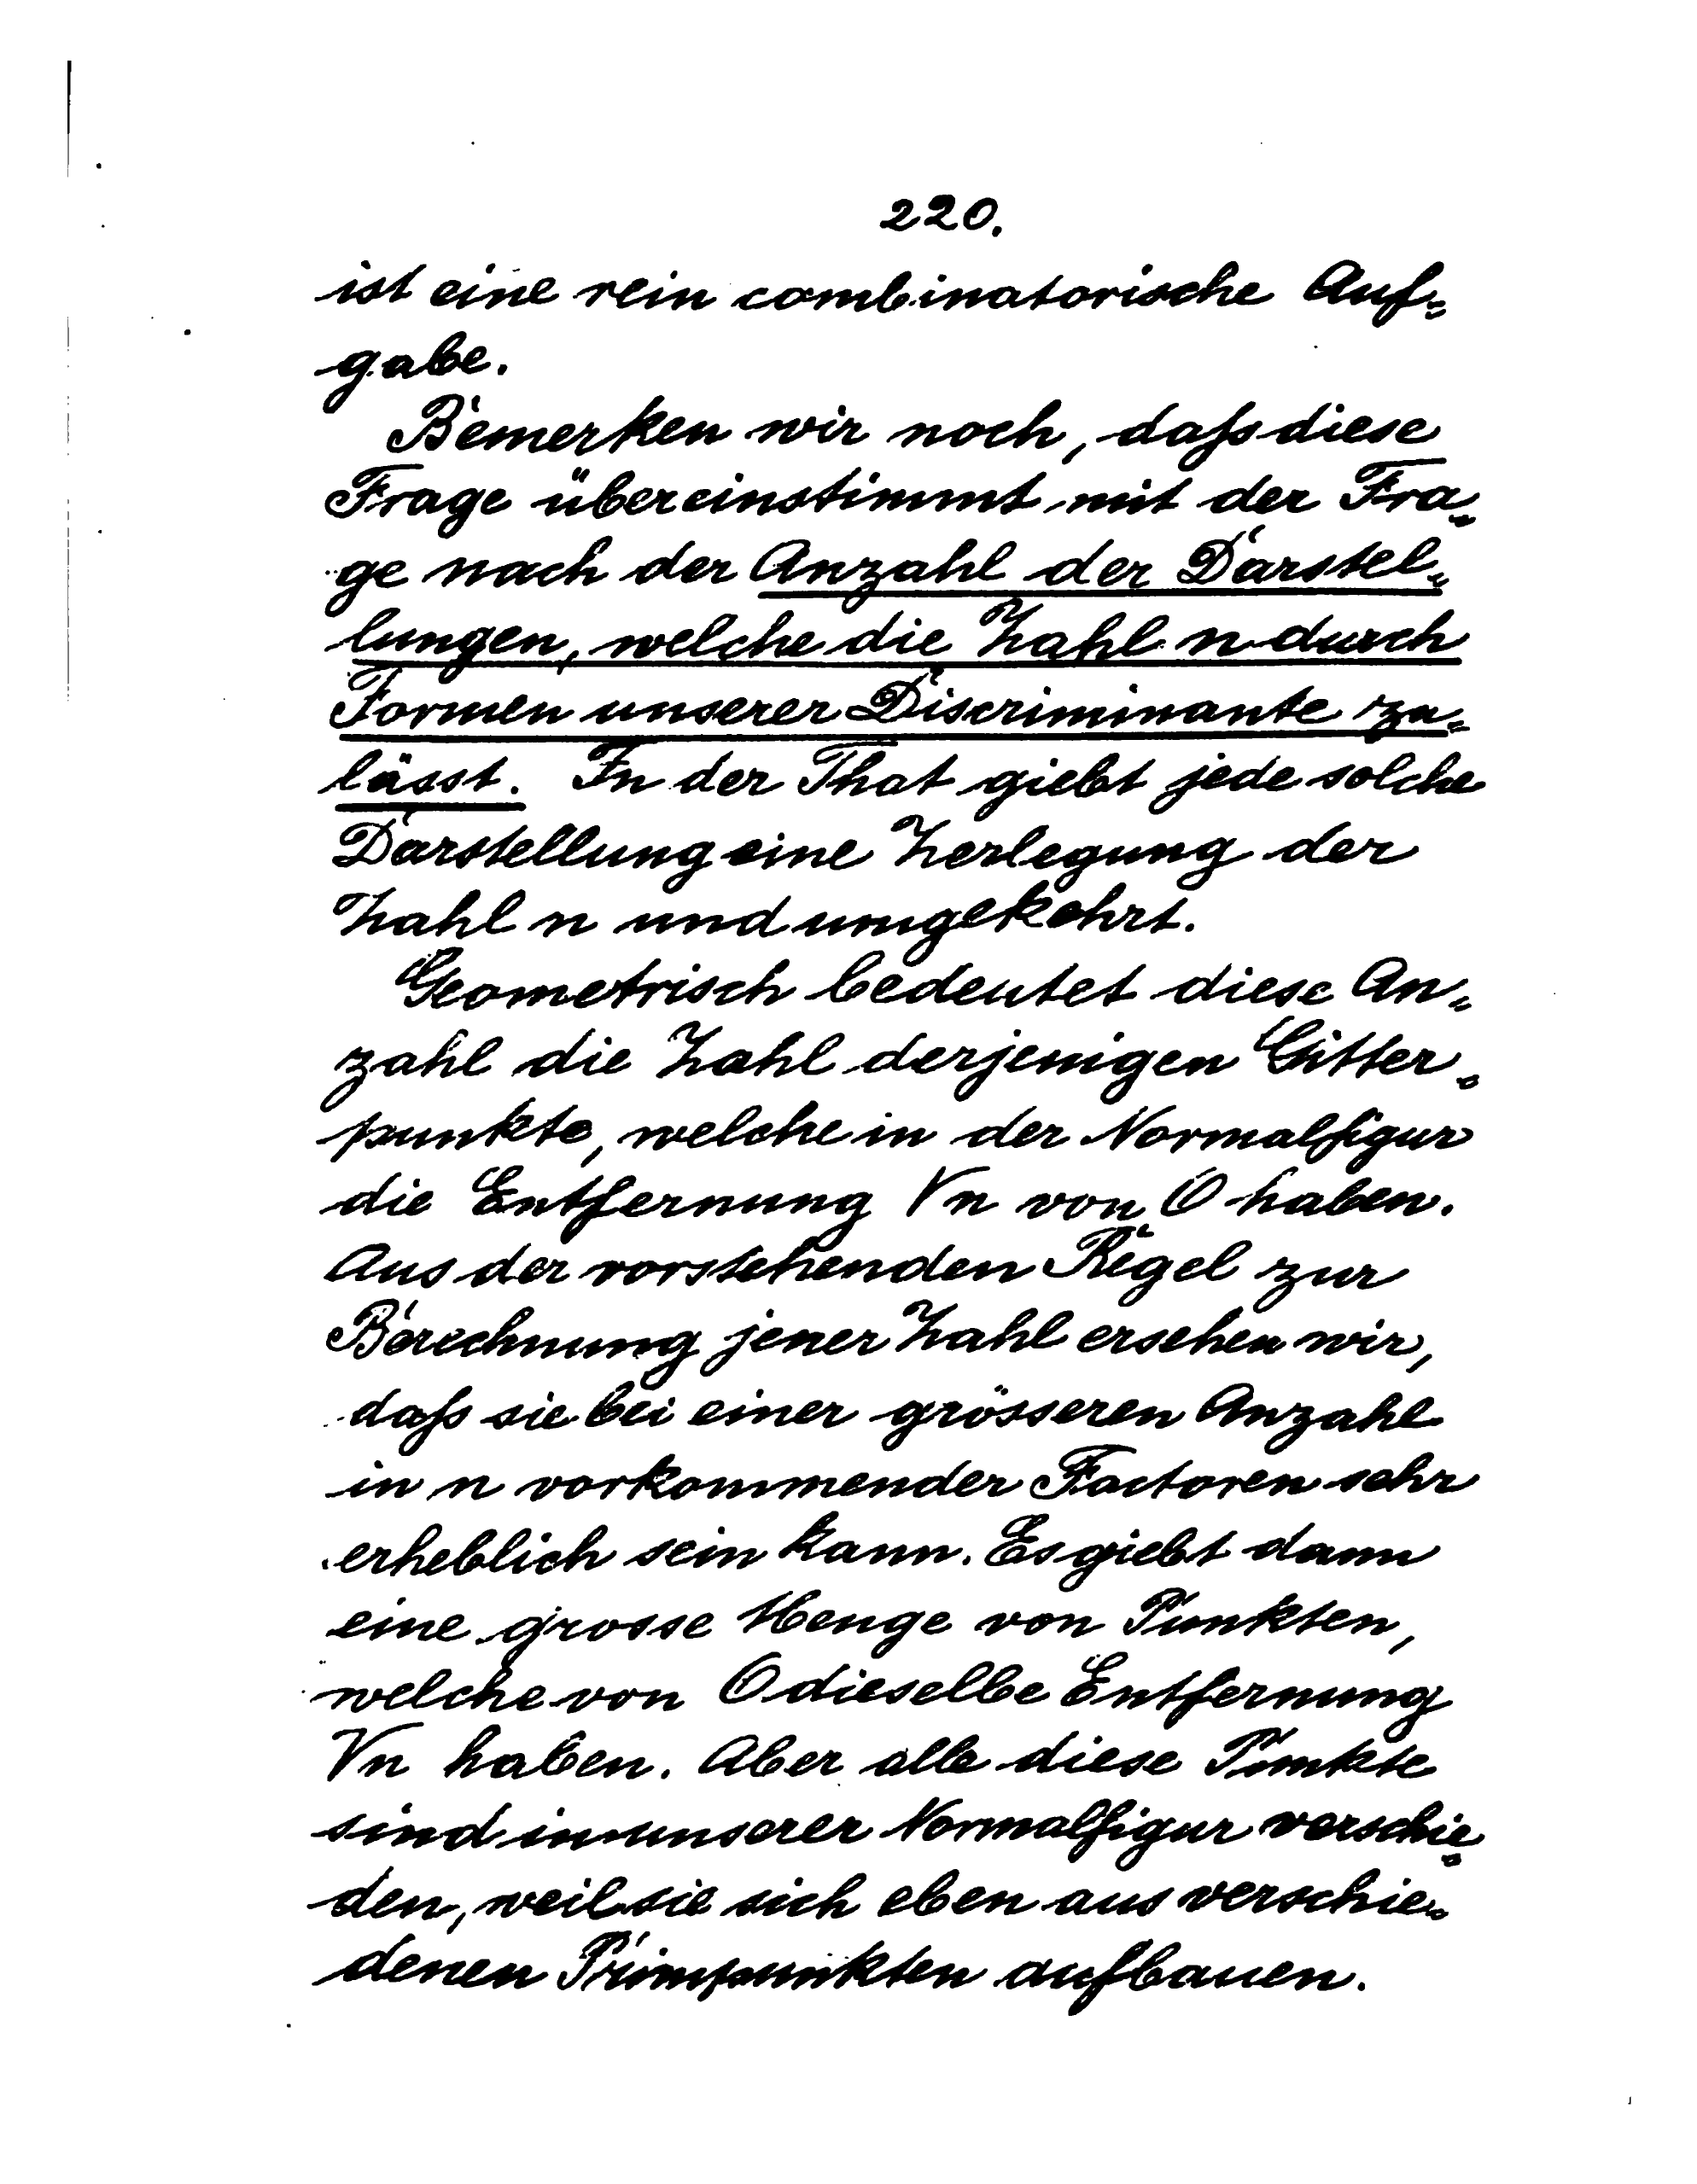 220.
ist eine rein combinatorische Auf=
gabe.
Bemerken wir noch, daſs diese
Frage übereinstimmt mit der Fra=
ge nach der Anzahl der Darstel=
lungen, welche die Zahl n durch
Formen unserer Discriminante zu=
lässt. In der That giebt jede solche
Darstellung eine Zerlegung der
Zahl n und umgekehrt.
Geometrisch bedeutet diese An=
zahl die Zahl derjenigen Gitter=
punkte, welche in der Normalfigur
die Entfernung √n von O haben.
Aus der vorstehenden Regel zur
Berechnung jener Zahl ersehen wir,
daſs sie bei einer grösseren Anzahl
in n vorkommender Factoren sehr
erheblich sein kann. Es giebt dann
eine grosse Menge von Punkten,
welche von O dieselbe Entfernung
√n haben. Aber alle diese Punkte
sind in unserer Normalfigur verschie=
den, weil sie sich eben aus verschie=
denen Primpunkten aufbauen.